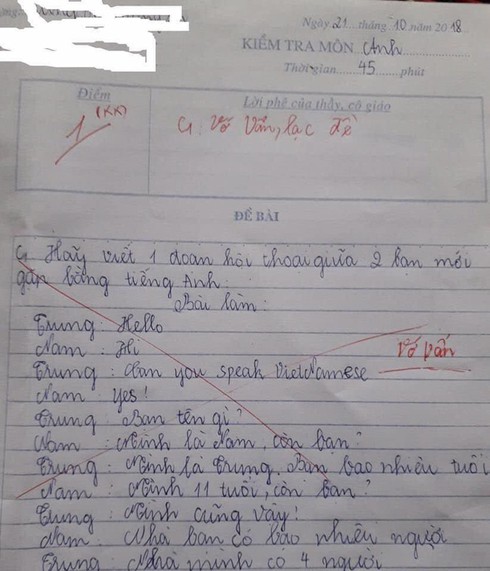 Ngày 21 tháng 10 năm 2018
KIỂM TRA MÔN Anh
Thời gian 45 phút
Điểm
Lời phê của thầy, cô giáo
1 (KK)
G: Vớ Vẩn, lạc đề
ĐỀ BÀI
G Hãy viết 1 đoan hội thoại giữa 2 bạn mới
gặp bằng tiếng Anh.
Bài làm:
Trung: Hello
Nam: Hi
Trung: Can you speak VietNamese
Vớ Vẩn
Nam: Yes!
Trung: Bạn tên gì?
Nam: Mình là Nam, còn bạn?
Trung: Mình là Trung, Bạn bao nhiêu tuổi
Nam: Mình 11 tuổi, còn bạn?
Trung: Mình cũng vậy!
Nam: Nhà bạn có bao nhiêu người
Trung: Nhà mình có 4 người